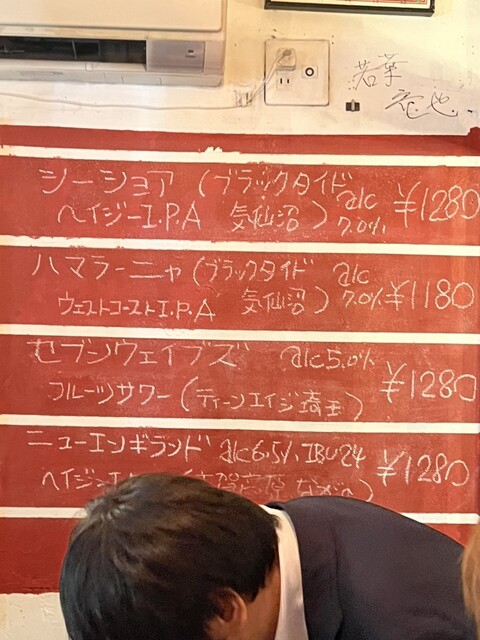 若葉
シーショア (ブラックタイド
ヘイジーI.P.A 気仙沼) alc 7.0% ¥1280
ハマラーニャ (ブラックタイド
ウェストコーストI.P.A 気仙沼) alc 7.0% ¥1180
セブンウェイブズ alc5.0%
フルーツサワー (ティーンエイジ埼玉) ¥1280
ニューエングランド alc6.5%, IBU24
ヘイジー ¥1280